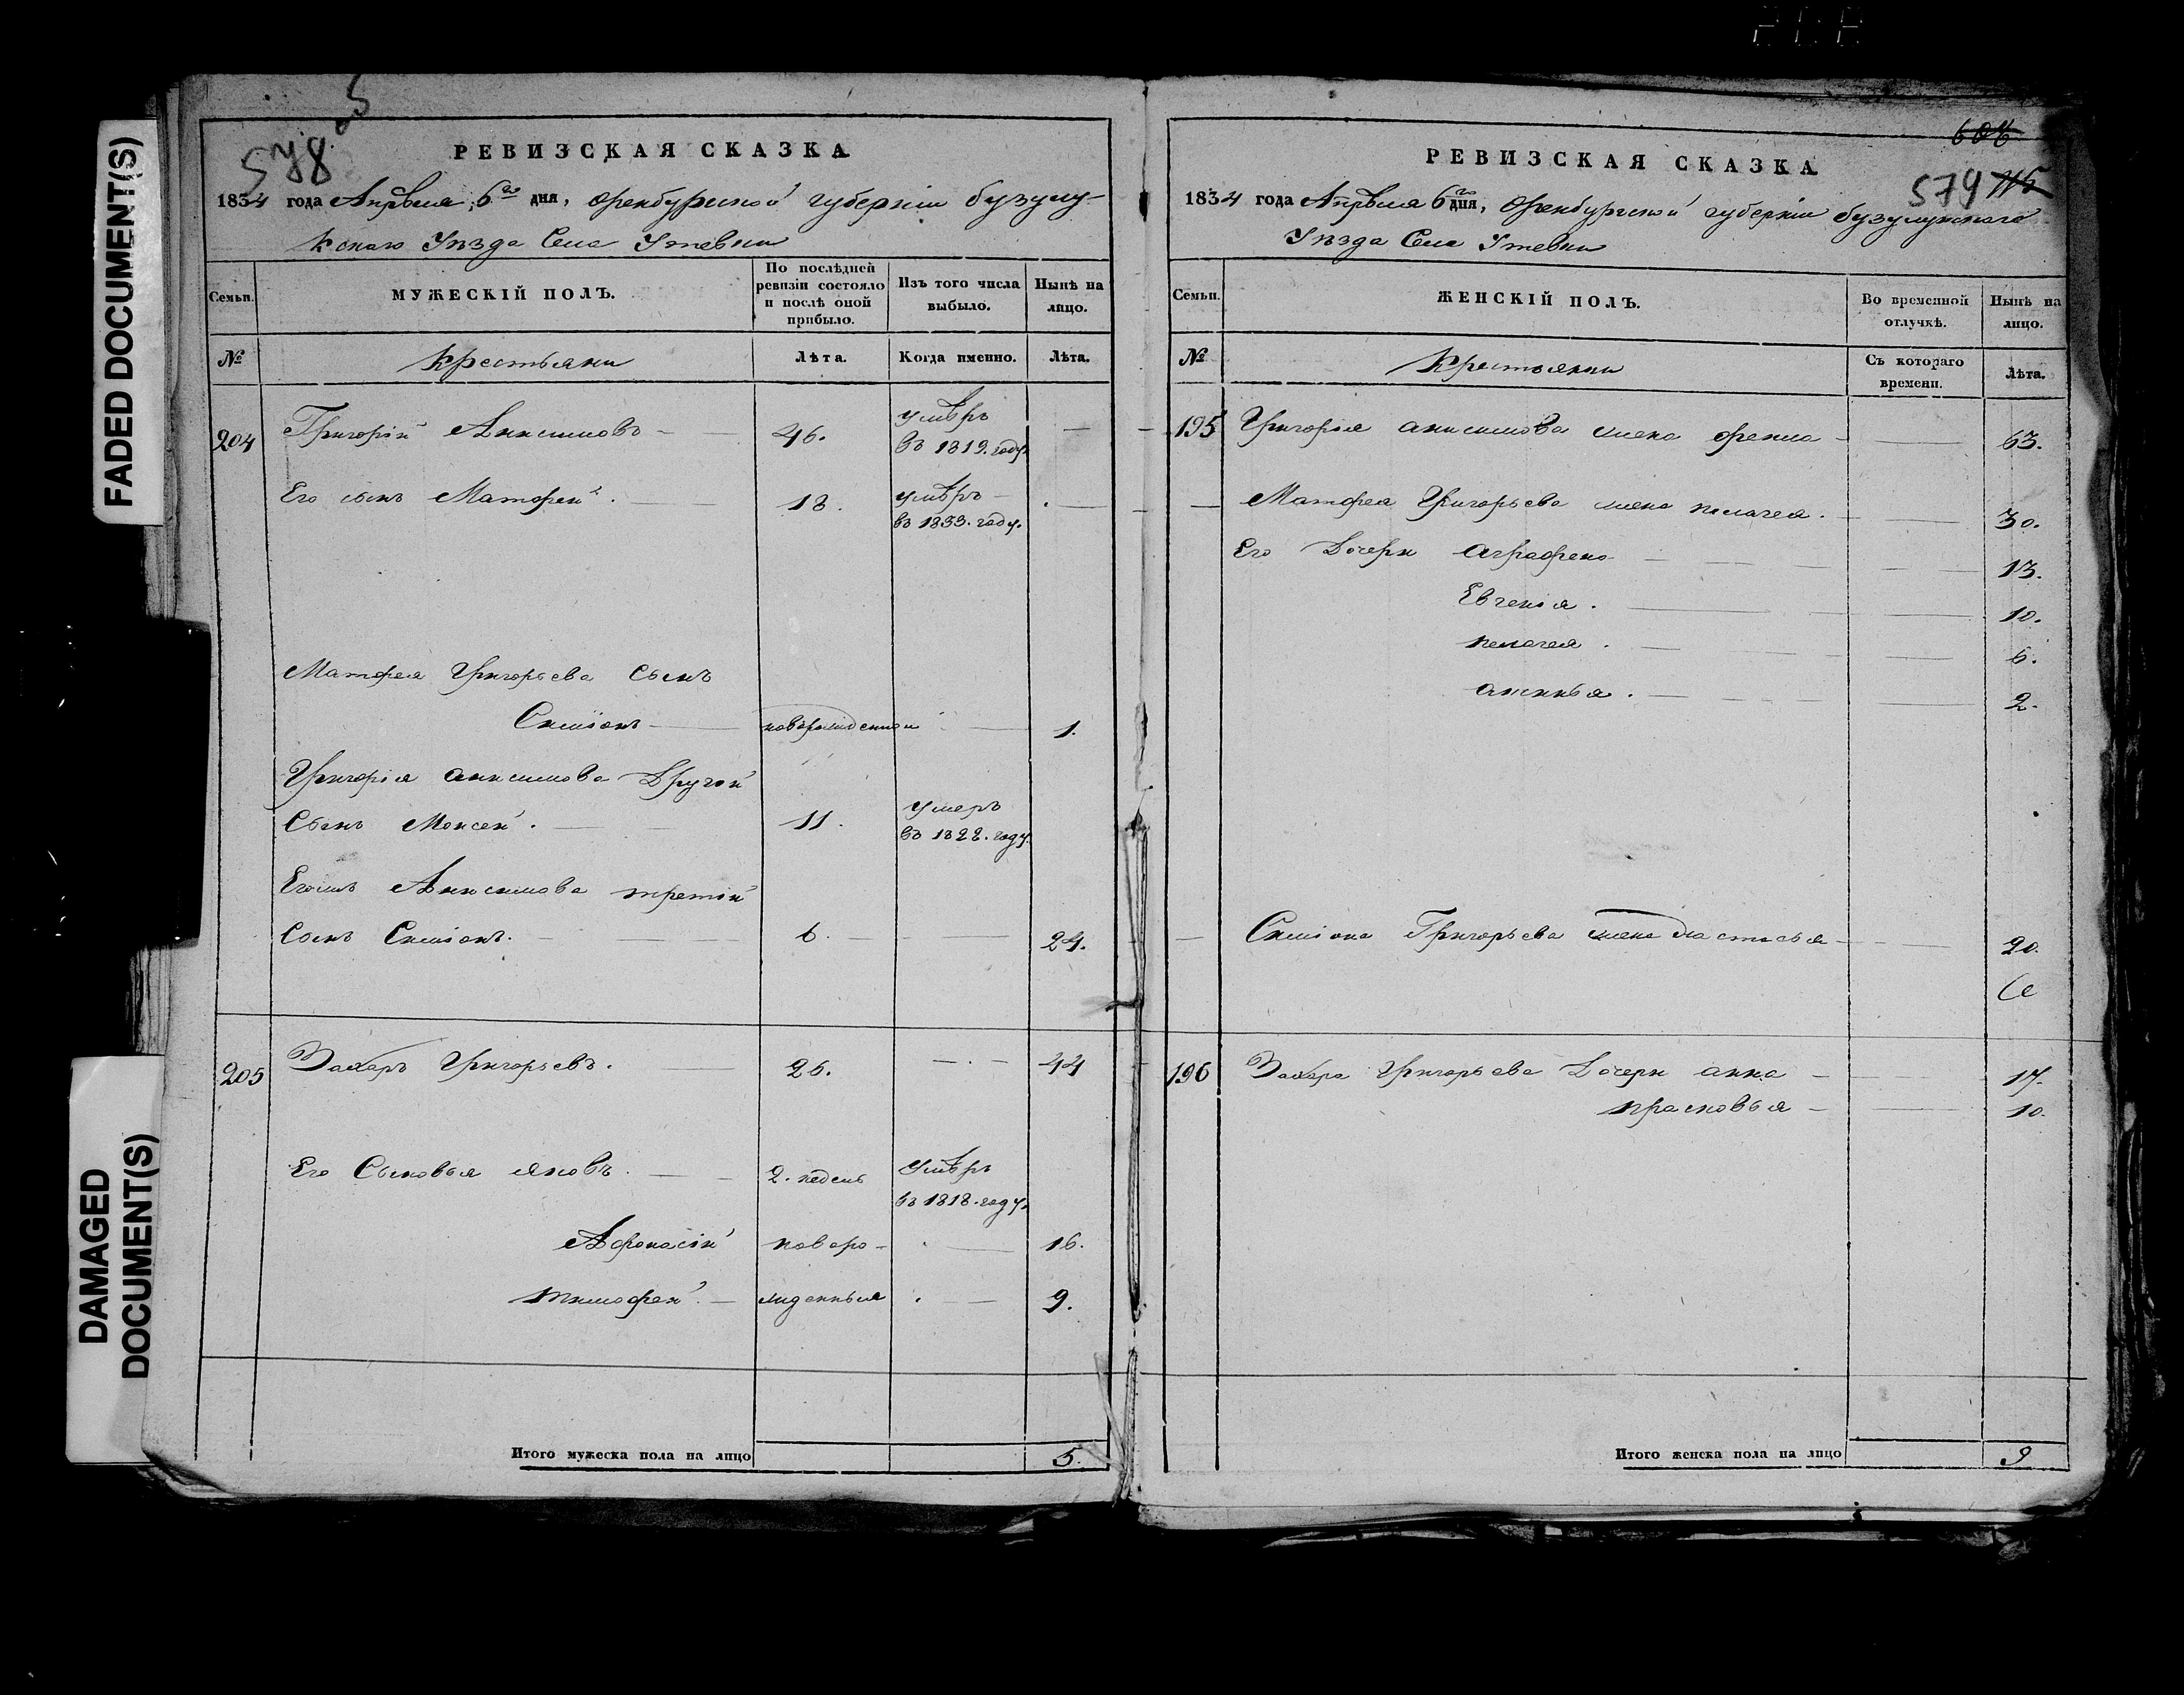 FADED DOCUMENT(S)
DAMAGED
DOCUMENT(S)
578
РЕВИЗСКАЯ СКАЗКА
1834 года Апрѣля 6го дня, Оренбургской губерніи бузулу-
кскаго Уѣзда Села Утевки
Семьи.
МУЖЕСКІЙ ПОЛЪ.
По послѣдней ревизіи состояло и послѣ оной прибыло.
Изъ того числа выбыло.
Нынѣ на лицо.
№
Крестьяни
Лѣта.
Когда именно.
Лѣта.
204 Григорій Анисимовъ — 46. умѣръ въ 1819. году. —
Его сынъ Матфей. — 18. умѣръ въ 1833. году. —
Матфея Григорьева Сынъ
Симіонъ — новорожденной — 1.
Григорія анисимова Другой
Сынъ Моисей. — 11. умеръ въ 1822. году.
Егожъ Анисимова третій
Сынъ Симіонъ. — 6. — 24.
205 Захаръ Григорьевъ. — 26. — 44
Его Сыновья яковъ. — 2. недель Умѣръ въ 1818. году.
Афонасій новоро- — 16.
тимофей. — жденныя — 9.
Итого мужеска пола на лицо 5.
606
579 115
РЕВИЗСКАЯ СКАЗКА
1834 года Апрѣля 6го дня, Оренбургской губерніи бузулукскаго
Уѣзда Села Утевки
Семьи.
ЖЕНСКІЙ ПОЛЪ.
Во временной отлучкѣ.
Нынѣ на лицо.
№
Крестьянки
Съ котораго времени.
Лѣта.
195 Григорія анисимова жена — 63.
Матфея Григорьева жена пелагея. — 30.
Его Дочери аграфена — 13.
Евгенія. — 10.
пелагея. — 6.
аксинья. — 2.
Симіона Григорьева жена настасья — 20.
196 Захара Григорьева Дочери анна — 17.
прасковья — 10.
Итого женска пола на лицо 9